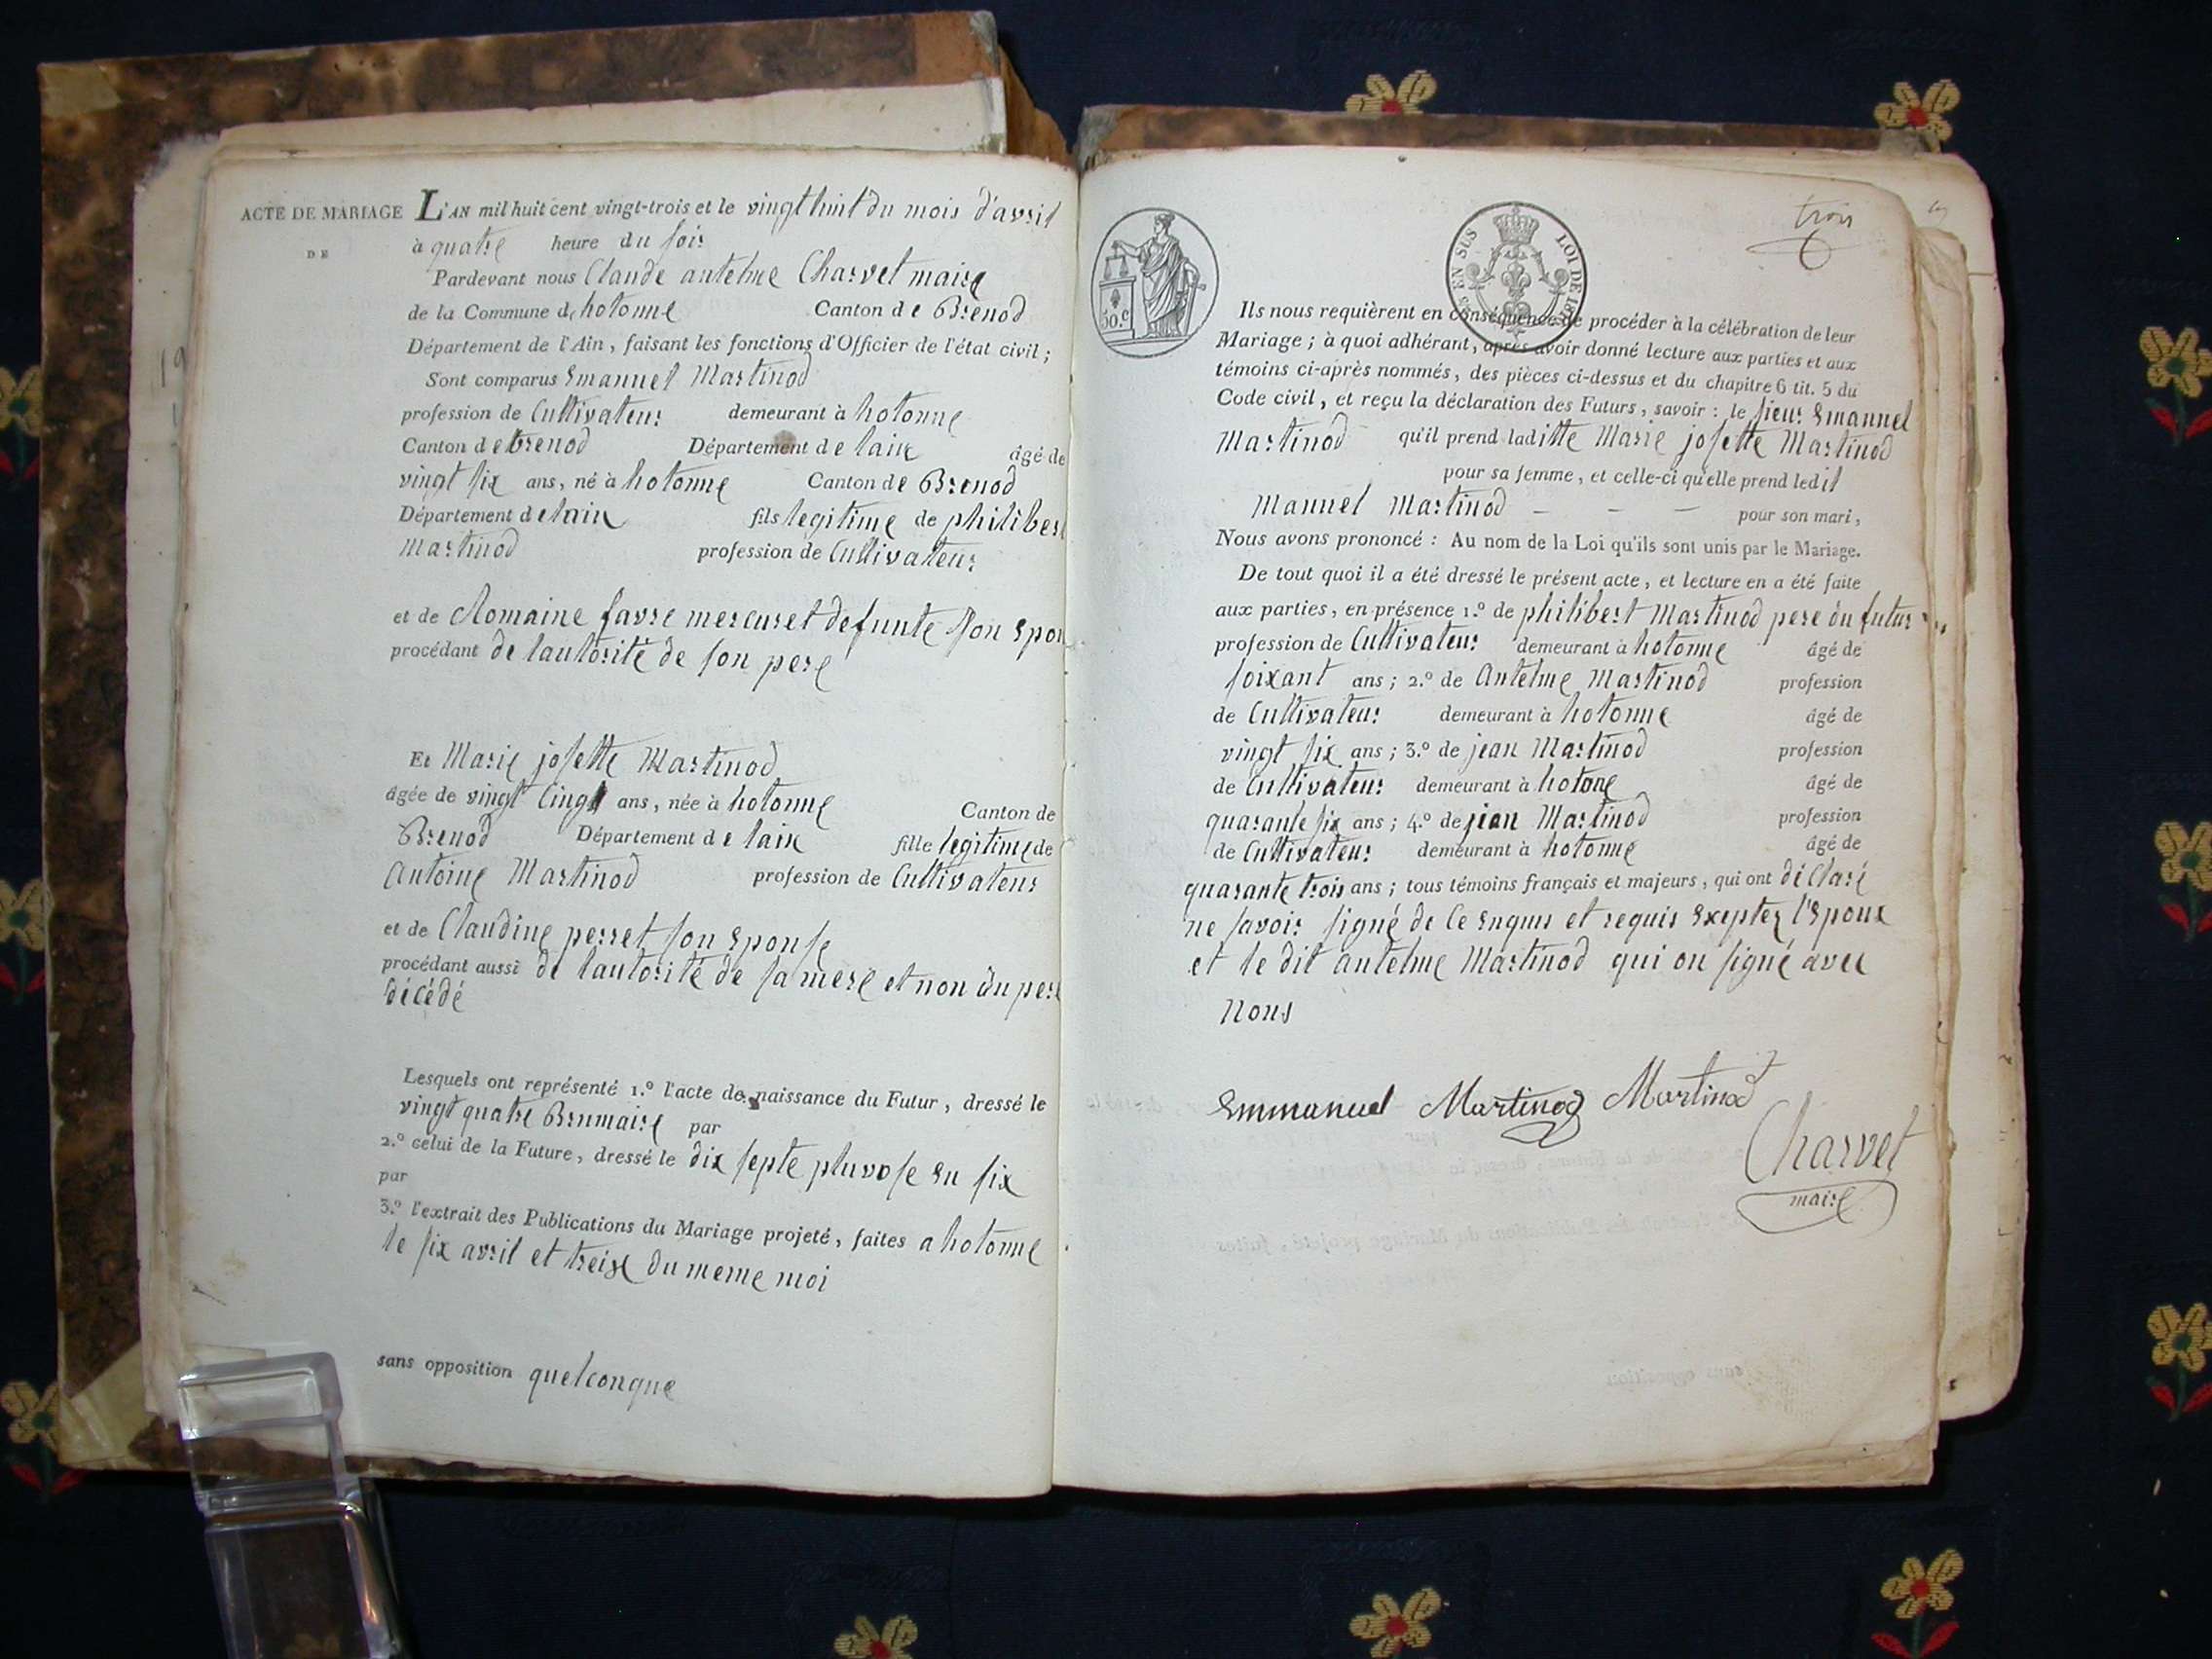 ACTE DE MARIAGE
DE
L'AN mil huit cent vingt-trois et le vingt huit du mois d'avril
à quatre heure du soir
Pardevant nous Claude antelme Charvet maire
de la Commune d, hotonne Canton de Brenod
Département de l'Ain, faisant les fonctions d'Officier de l'état civil;
Sont comparus Emanuel Martinod
profession de Cultivateur demeurant à hotonne
Canton de brenod Département de lain âgé de
vingt six ans, né à hotonne Canton de Brenod
Département de lain fils legitime de philibert
Martinod profession de Cultivateur
et de Romaine favre mercuret defunte Son Epou
procédant de lautorité de son pere
Et Marie josette Martinod
âgée de vingt Cinq ans, née à hotonne Canton de
Brenod Département de lain fille legitime de
Antoine Martinod profession de Cultivateur
et de Claudine perret son Epouse
procédant aussi de lautorité de sa mere et non du pere
décédé
Lesquels ont représenté 1.º l'acte de naissance du Futur, dressé le
vingt quatre Brumaire par
2.º celui de la Future, dressé le dix septe pluvose en six
par
3.º l'extrait des Publications du Mariage projeté, faites a hotonne
le six avril et treize du meme moi
sans opposition quelconque
50.c
EN SUS LOI DE
trois
Ils nous requièrent en conséquence de procéder à la célébration de leur
Mariage; à quoi adhérant, après avoir donné lecture aux parties et aux
témoins ci-après nommés, des pièces ci-dessus et du chapitre 6 tit. 5 du
Code civil, et reçu la déclaration des Futurs, savoir: le sieur Emanuel
Martinod qu'il prend laditte Marie josette Martinod
pour sa femme, et celle-ci qu'elle prend ledit
Manuel Martinod — — — pour son mari,
Nous avons prononcé: Au nom de la Loi qu'ils sont unis par le Mariage.
De tout quoi il a été dressé le présent acte, et lecture en a été faite
aux parties, en présence 1.º de philibert Martinod pere du futur
profession de Cultivateur demeurant à hotonne âgé de
soixant ans; 2.º de Antelme Martinod profession
de Cultivateur demeurant à hotonne âgé de
vingt six ans; 3.º de jean Martinod profession
de Cultivateur demeurant à hotone âgé de
quarante six ans; 4.º de jean Martinod profession
de Cultivateur demeurant à hotonne âgé de
quarante trois ans; tous témoins français et majeurs, qui ont déclaré
ne savoir signé de Ce enquis et requis Exeptez l'Epoux
et le dit antelme Martinod qui on signé avec
nous
Emmanuel Martinod Martinod
Charvet
maire